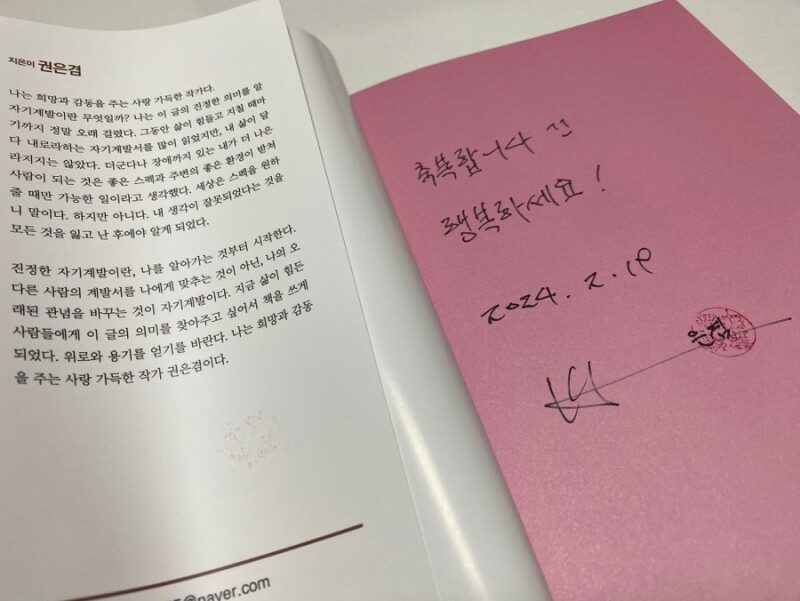 지은이 권은겸
나는 희망과 감동을 주는 사랑 가득한 작가다.
자기계발이란 무엇일까? 나는 이 글의 진정한 의미를 알
기까지 정말 오래 걸렸다. 그동안 삶이 힘들고 지칠 때마
다 내로라하는 자기계발서를 많이 읽었지만, 내 삶이 달
라지지는 않았다. 더군다나 장애까지 있는 내가 더 나은
사람이 되는 것은 좋은 스펙과 주변의 좋은 환경이 받쳐
줄 때만 가능한 일이라고 생각했다. 세상은 스펙을 원하
니 말이다. 하지만 아니다. 내 생각이 잘못되었다는 것을
모든 것을 잃고 난 후에야 알게 되었다.
진정한 자기계발이란, 나를 알아가는 것부터 시작한다.
다른 사람의 계발서를 나에게 맞추는 것이 아닌, 나의 오
래된 관념을 바꾸는 것이 자기계발이다. 지금 삶이 힘든
사람들에게 이 글의 의미를 찾아주고 싶어서 책을 쓰게
되었다. 위로와 용기를 얻기를 바란다. 나는 희망과 감동
을 주는 사랑 가득한 작가 권은겸이다.
@naver.com
축복합니다
행복하세요!
2024. 2. 19
은겸